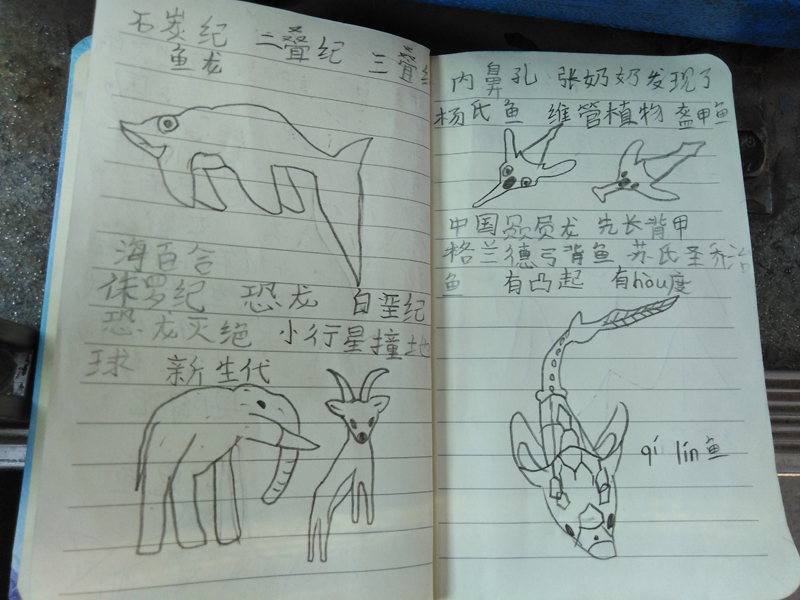 石炭纪 二叠纪 三叠纪
鱼龙
海百合
侏罗纪 恐龙 白垩纪
恐龙灭绝 小行星撞地
球 新生代
内鼻孔 张奶奶发现了
杨氏鱼 维管植物 盔甲鱼
中国 龙 先长背甲
格兰德弓背鱼 苏氏圣乔治
鱼 有凸起 有hòu度
qí lín鱼